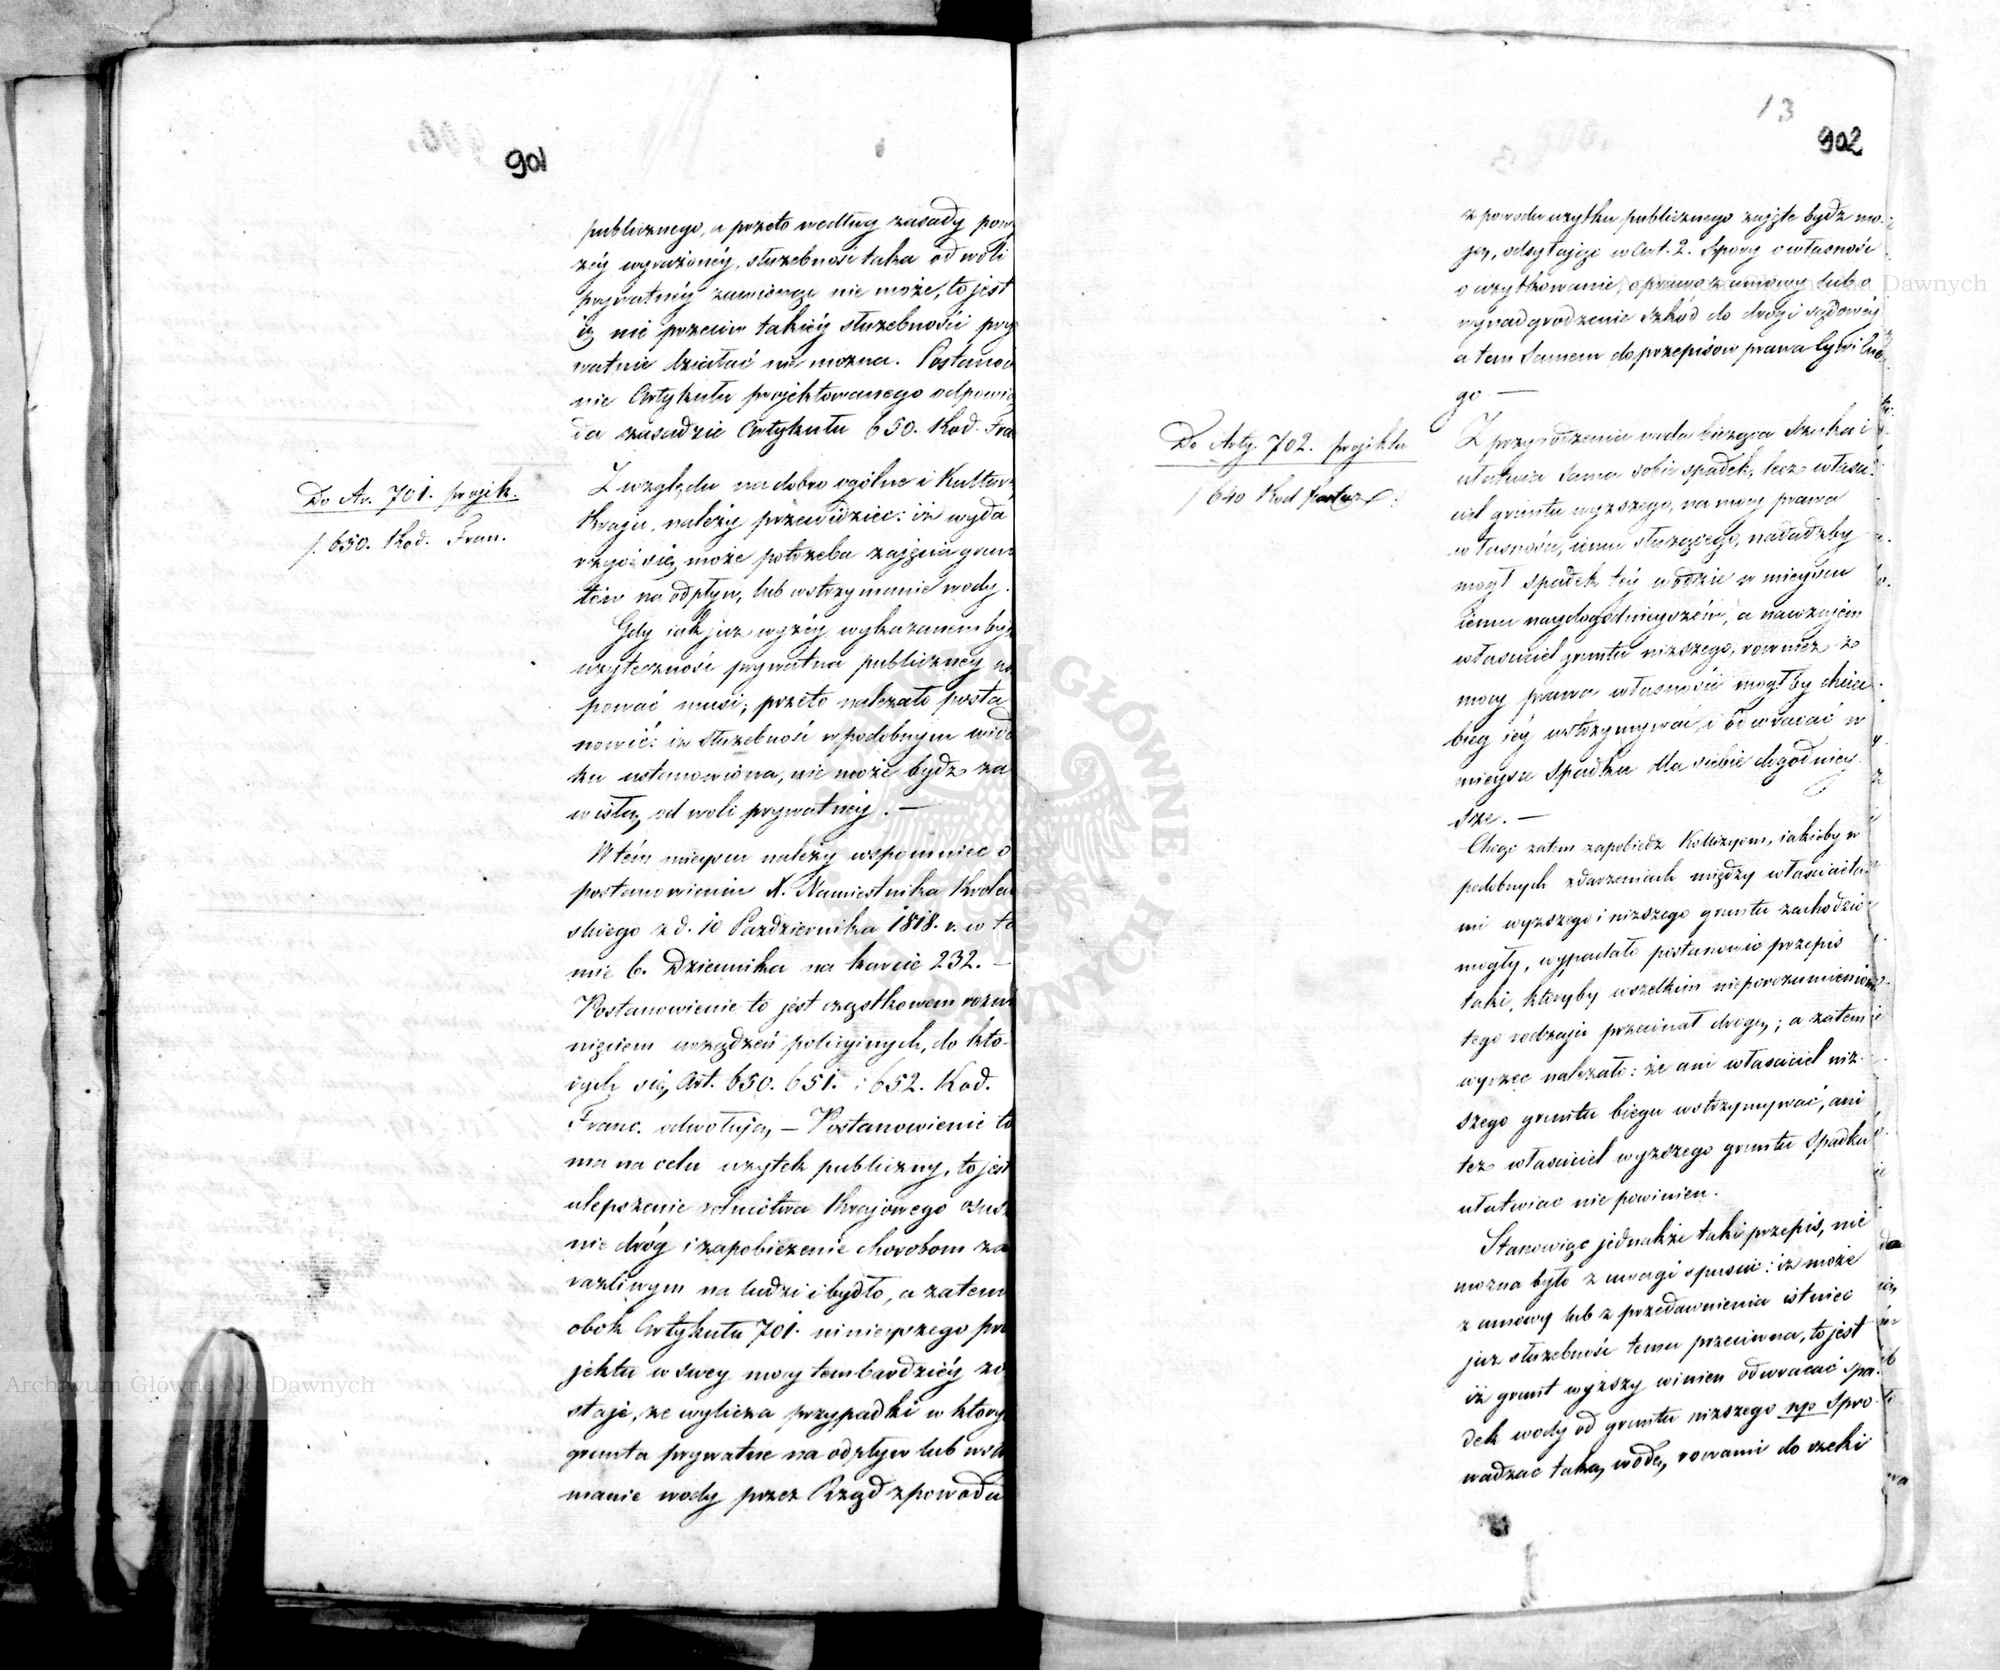 901
publicznego, a przeto według zasady pow
żéy wyrażonéy, służebność taka od woli
prywatnéy zawisnąć nie może, to jest
iż nie przeciw takiéy służebności pry
watnie działać nie można. Postanowi
nie Artykułu projektowanego odpowia
da zasadzie Artykułu 650. Kod. Fra
Do Ar. 701. projek.
/. 650. Kod. Fran.
Z względu na dobro ogólne i Kulturę
Kraju, należy przewidzieć: iż wyda
rzyć się może potrzeba zajęcia grun
tów na odpływ, lub wstrzymanie wody.
Gdy jak już wyżéy wykazanem było
użyteczność prywatna publiczney us
pować musi; przeto należało posta
nowić: iż służebność w podobnym wido
ku ustanowiona, nie może bydź za
wisłą od woli prywatnéy. —
W tém mieyscu należy wspomnieć o
postanowieniu X. Namiestnika Królew
skiego z d. 10 Października 1818. r. w to
mie 6. Dziennika na karcie 232. —
Postanowienie to jest cząstkowem rozwi
nięciem urządzeń policyinych, do któ-
rych się Art. 650. 651. i 652. Kod.
Franc. odwołują, — Postanowienie to
ma na celu użytek publiczny, to jest
ulepszenie rolnictwa Krajowego osusz
nie dróg i zapobieżenie chorobom za
raźliwym na ludzi i bydło, a zatem
obok Artykułu 701. ninieyszego pro
jektu w swey mocy tembardziéy zo
staje, że wylicza przypadki w który
grunta prywatne na odpływ lub wstrz
manie wody przez Rząd z powodu
13
902
z powodu użytku publicznego zajęte bydź mo-
gą, odsyłając w Art. 2. Spory o własność
o użytkowanie, o prawo z umowy lub o
wynadgrodzenie szkód do drogi sądowéy
a tem samem do przepisów prawa Cywilne
go —
Do Arty. 702. projektu
/ 640 Kod
Z przyrodzenia woda bieżąca szuka i
ułatwia sama sobie spadek, lecz właści-
ciel gruntu wyższego, na mocy prawa
własności, iemu służącego, nadadzby
mógł spadek téy wodzie w mieyscu
iemu naydogodnieyszém, a nawzajem
właściciel gruntu niższego, również z
mocy prawa własności mógłby chcieć
bieg iéy wstrzymywać, i odwracać w
mieysce spadku dla siebie dogodniey
sze. —
Chcąc zatem zapobiedz Kollizyom, iakieby w
podobnych zdarzeniach między właściciela-
mi wyższego i niższego gruntu zachodzić
mogły, wypadało postanowić przepis
taki, któryby wszelkim nieporozumieniom
tego rodzaju przecinał drogę; a zatem
wyrzec należało: że ani właściciel niż-
szego gruntu biegu wstrzymywać, ani
też właściciel wyższego gruntu spadku
ułatwiać nie powinien.
Stanowiąc jednakże taki przepis, nie
można było z uwagi spuścić: iż może
z umowy lub z przedawnienia istnieć
już służebność temu przeciwna, to jest
iż grunt wyższy winien odwracać spa-
dek wody od gruntu niższego np spro
wadzać taką wodę, rowami do rzeki
Archiwum Główne Akt Dawnych